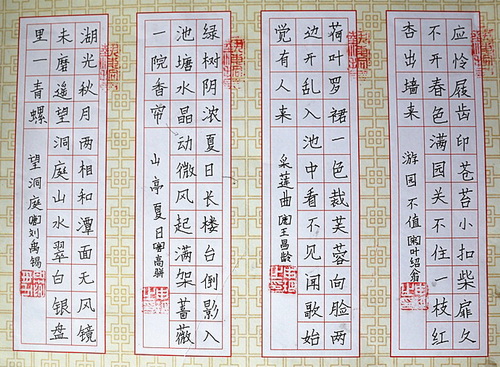 应怜屐齿印苍苔小扣柴扉久
不开春色满园关不住一枝红
杏出墙来 游园不值 叶绍翁
荷叶罗裙一色裁芙蓉向脸两
边开乱入池中看不见闻歌始
觉有人来 采莲曲 [唐]王昌龄
绿树阴浓夏日长楼台倒影入
池塘水晶动微风起满架蔷薇
一院香帘 山亭夏日 [唐]高骈
湖光秋月两相和潭面无风镜
未磨遥望洞庭山水翠白银盘
里一青螺 望洞庭 [唐]刘禹锡